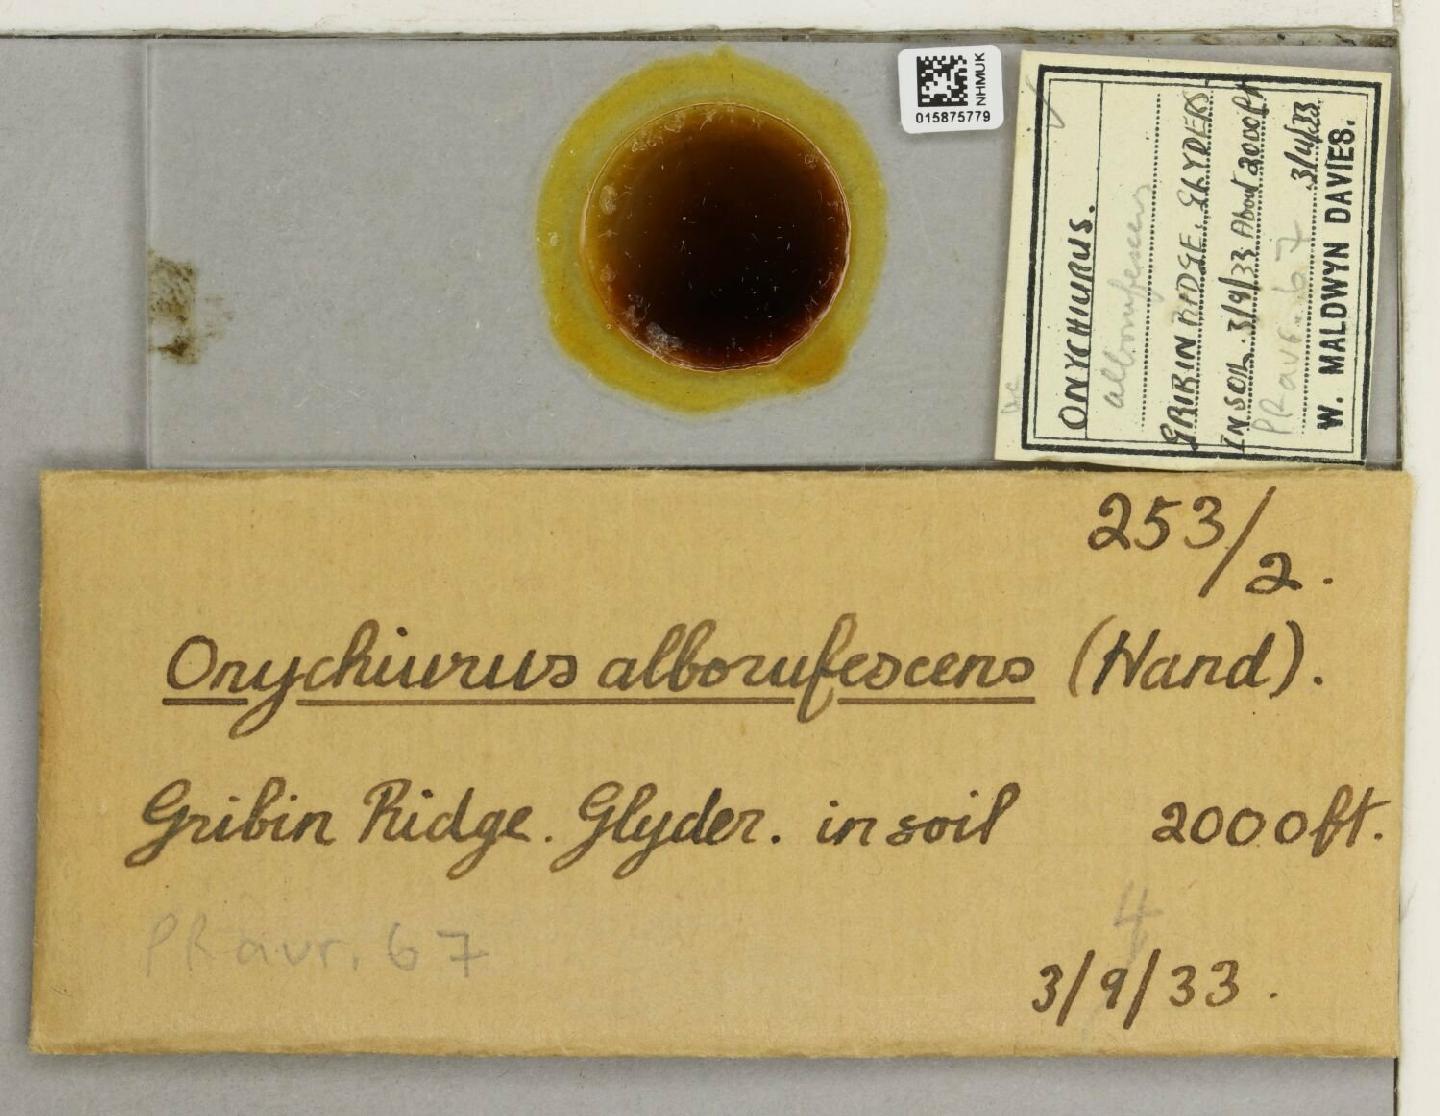 NHMUK
015875779
ONYCHIURUS.
alborufescens
GRIBIN RIDGE. GLYDERS
IN SOIL. 3/9/33 About 2000ft
PRavr. 67 3/4/33
W. MALDWYN DAVIES.
253/2.
Onychiurus alborufescens (Hand).
Gribin Ridge. Glyder. in soil 2000ft.
PRavr. 67
4
3/9/33.